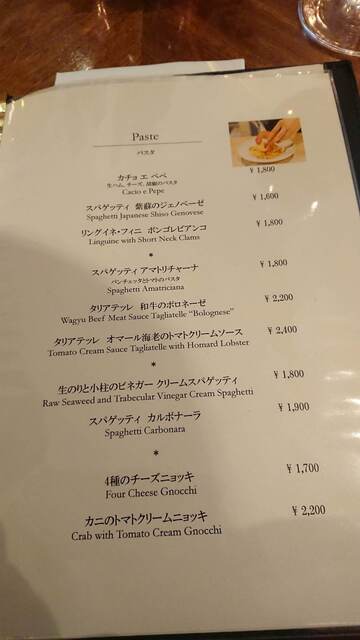 Paste
パスタ
カチョ エ ペペ ¥ 1,800
生ハム、チーズ、胡椒のパスタ
Cacio e Pepe
スパゲッティ 紫蘇のジェノベーゼ ¥ 1,600
Spaghetti Japanese Shiso Genovese
リングイネ・フィニ ボンゴレビアンコ ¥ 1,800
Linguine with Short Neck Clams
*
スパゲッティ アマトリチャーナ ¥ 1,800
パンチェッタとトマトのパスタ
Spaghetti Amatriciana
タリアテッレ 和牛のボロネーゼ ¥ 2,200
Wagyu Beef Meat Sauce Tagliatelle “Bolognese”
タリアテッレ オマール海老のトマトクリームソース ¥ 2,400
Tomato Cream Sauce Tagliatelle with Homard Lobster
*
生のりと小柱のビネガー クリームスパゲッティ ¥ 1,800
Raw Seaweed and Trabecular Vinegar Cream Spaghetti
スパゲッティ カルボナーラ ¥ 1,900
Spaghetti Carbonara
*
4種のチーズニョッキ ¥ 1,700
Four Cheese Gnocchi
カニのトマトクリームニョッキ ¥ 2,200
Crab with Tomato Cream Gnocchi